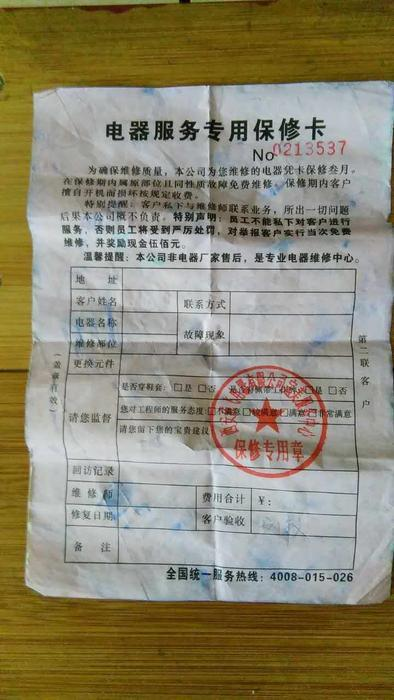 电器服务专用保修卡
No 0213537
为确保维修质量，本公司为您维修的电器凭卡保修叁月。
在保修期内属原部位且同性质故障免费维修。保修期内客户
擅自开机而损坏按规定收费。
特别提醒：客户私下与维修师联系业务，所出一切问题
后果本公司概不负责。特别声明：员工不能私下对客户进行
服务，否则员工将受到严厉处罚，对举报客户实行当次免费
维修，并奖励现金伍佰元。
温馨提醒：本公司非电器厂家售后，是专业电器维修中心。
地 址
客户姓名 联系方式
电器名称 故障现象
维修部位
更换元件
请您监督
是否穿鞋套：□是 □否 是否 □是 □否
您对工程师的服务态度：□不满意 □较满意 □满意 □非常满意
请您留下您的宝贵建议
回访记录
维修师 费用合计 ¥：
修复日期 客户验收
备 注
全国统一服务热线：4008-015-026
（盖章有效）
第二联客户
保修专用章